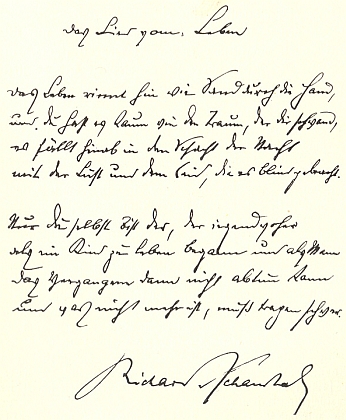 das Lied vom Leben
Das Leben rinnt hin wie Sand durch die Hand,
und du hast es kaum wie den Traum, der dir schwand,
es fällt hinab in den Schacht der Nacht
mit der Lust und dem Leid, die es blind gebracht.
Nur du selbst bist der, der irgendwoher
als ein Kind zu leben begann und als Mann
das Vergangene dann nicht abtun kann
und was nicht mehr ist, muß tragen schwer.
Richard Schaukal